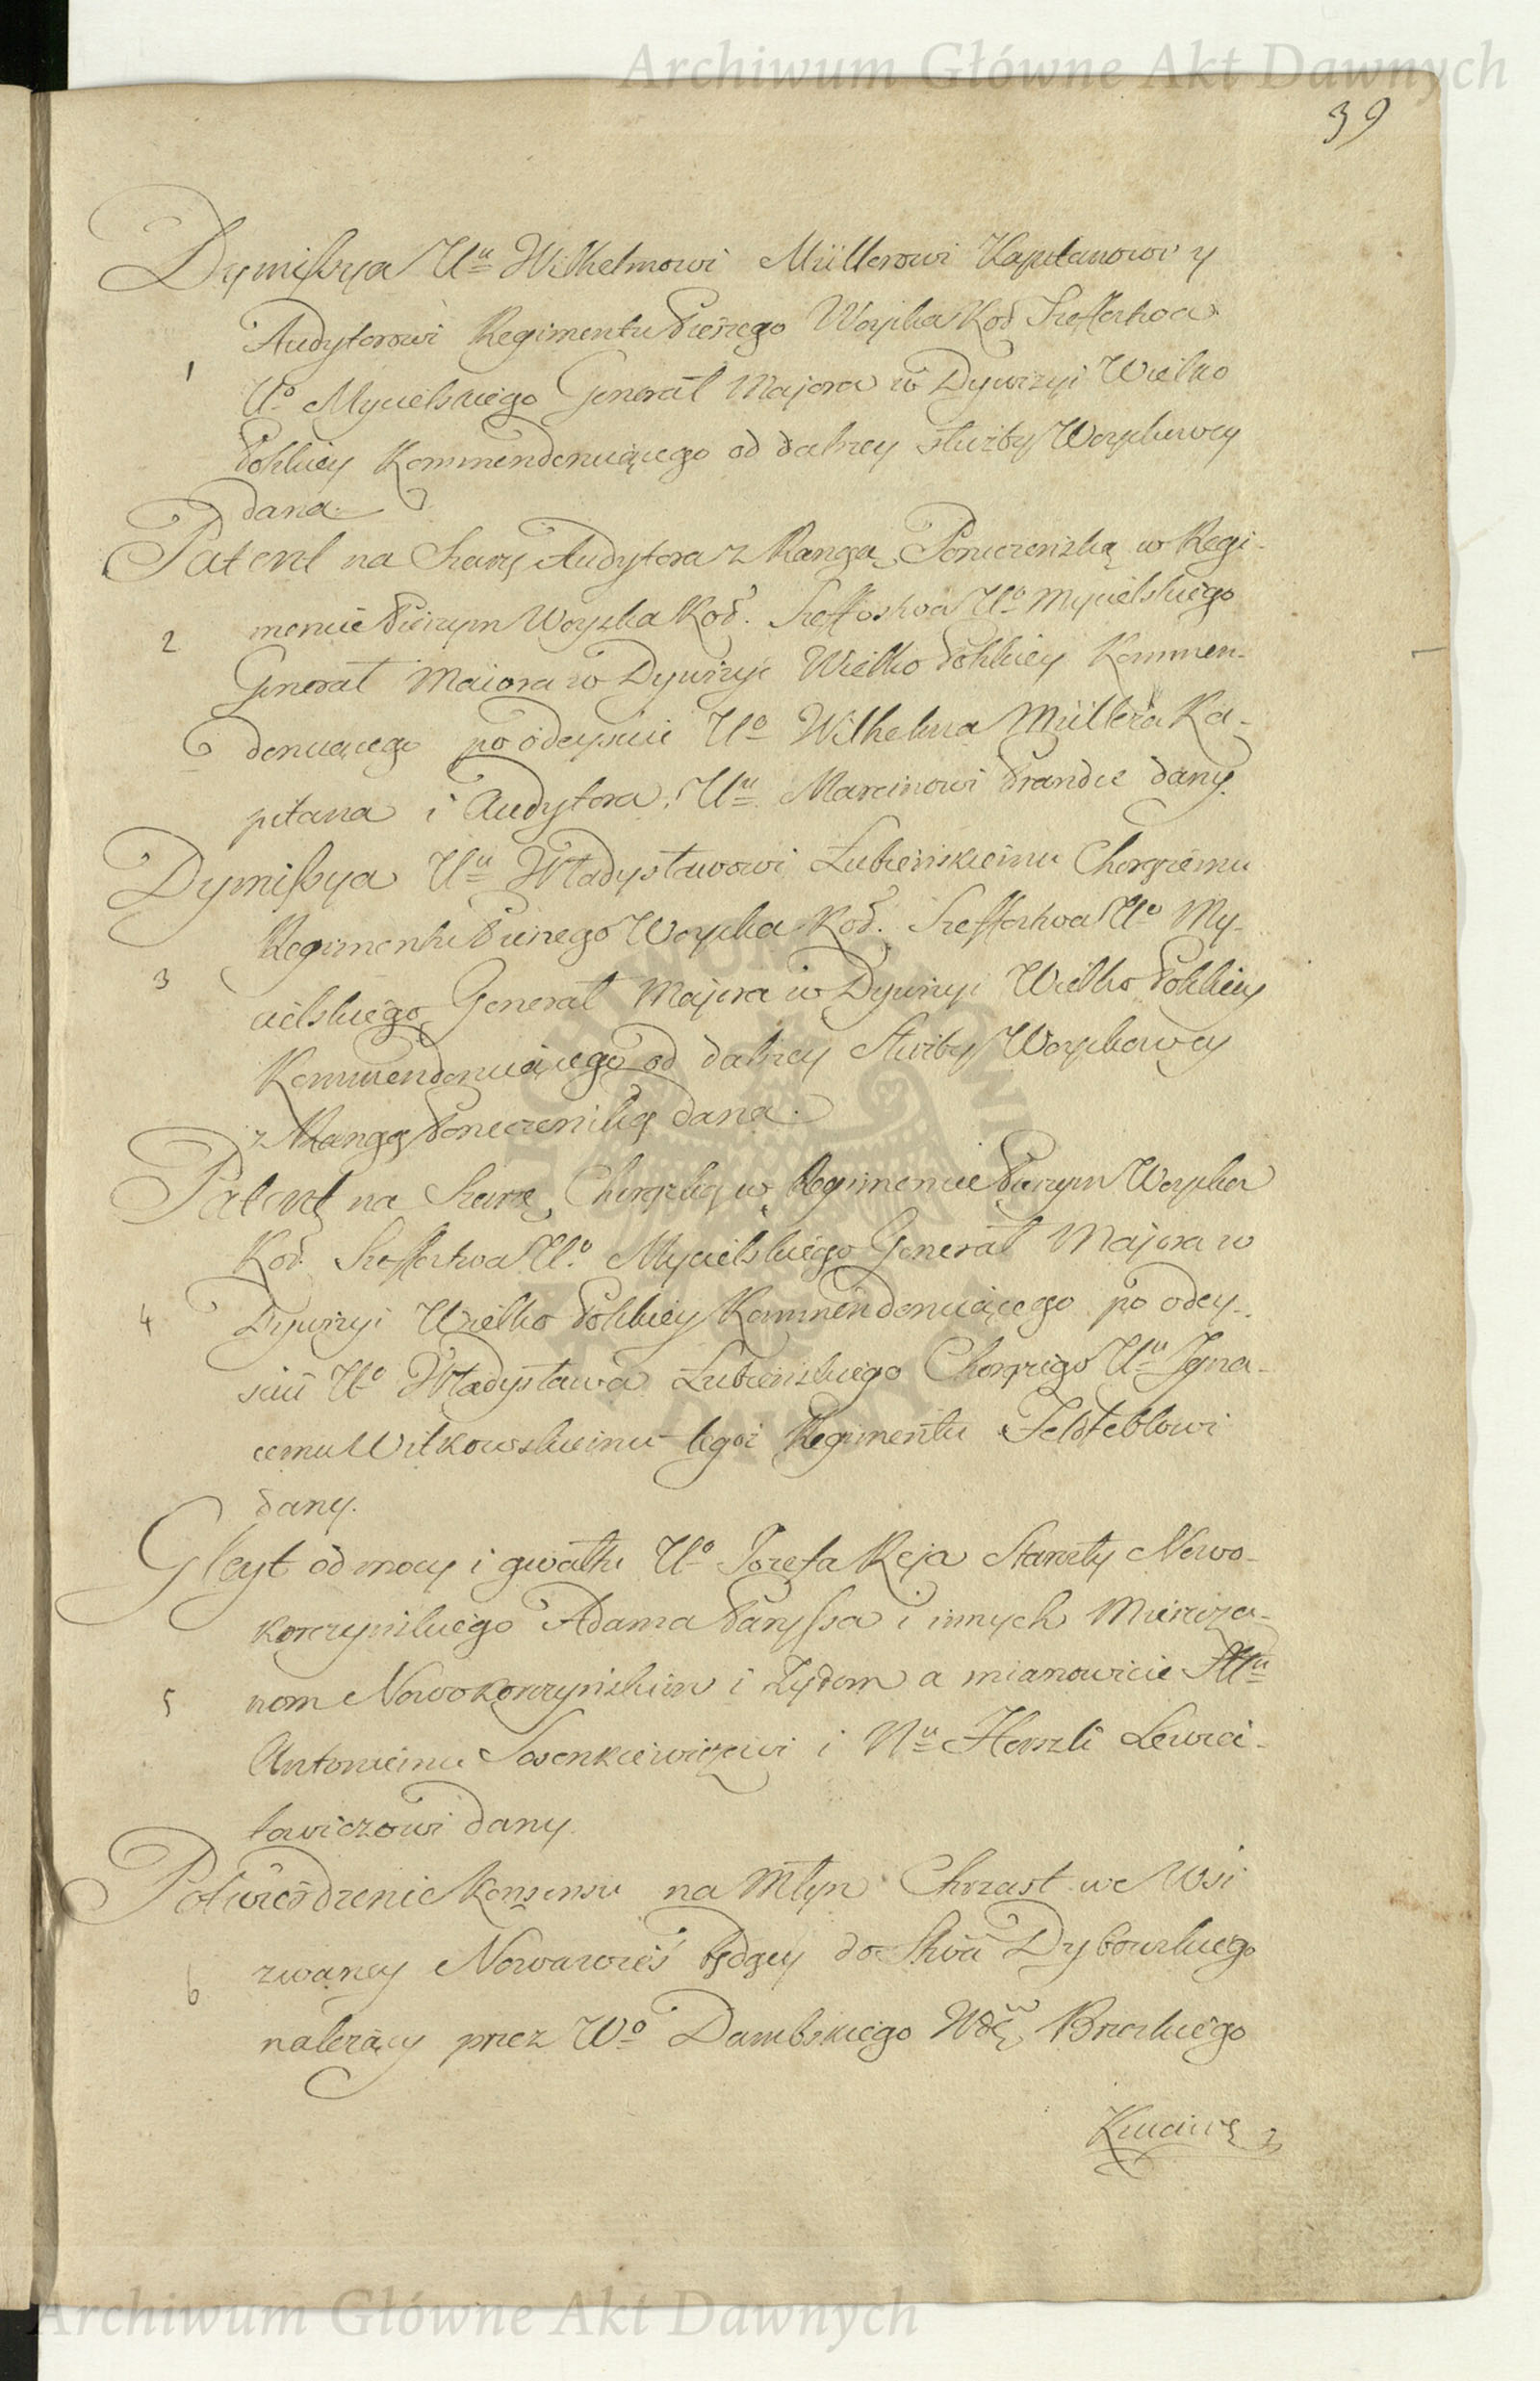 Archiwum Główne Akt Dawnych
39
Dymissya Uu Wilhelmowi Müllerowi Kapitanowi y
Audytorowi Regimentu Pieszego Woyska Kor. Szeffostwa
1
Uo Mycielskiego Generał Majora w Dywizyi Wielko
Polskiey Kommenderuiącego od dalszey służby Woyskowey
dana.
Patent na Szarżę Audytora z Rangą Porucznikską w Regi-
mencie Pieszym Woyska Kor. Szeffostwa Uo Mycielskiego
2
Generał Maiora w Dywizyi Wielko Polskiey Kommen-
deruiącego po odeyściu Uo Wilhelma Müllera Ka-
pitana i Audytora, Uu Marcinowi Brandce dany.
Dymissya Uu Władysławowi Łubieńskiemu Chorążemu
Regimentu Pieszego Woyska Kor. Szeffostwa Uo My-
3
cielskiego Generał Majora w Dywizyi Wielko Polskiey
Kommenderuiącego od dalszey Służby Woyskowey
z Rangą dana.
Patent na Szarżę Chorążską w Regimencie Pieszym Woyska
Kor. Szeffostwa Uo. Mycielskiego Generał Majora w
4
Dywizyi Wielko Polskiey Kommenderuiącego po odey-
ściu Uo Władysława Łubieńskiego Chorążego Uu Igna-
cemu Witkowskiemu tegoż Regimentu Feldfeblowi
dany.
Gleyt od mocy i gwałtu Uo Jozefa Reja Starosty Nowo-
korczyńskiego Adama i innych Mieszcza-
nom Nowokorczyńskim i Żydom a mianowicie Uu
5
Antoniemu Sosenkiewiczowi i Nu Herszli Lewici-
towiczowi dany.
Potwierdzenie Konsensu na Młyn Chrzast we Wsi
zwaney Nowawieś będący do Stwa Dybowskiego
6
należący przez Wo Dambskiego Wdę Brzeskiego
Kuiaws
Archiwum Główne Akt Dawnych